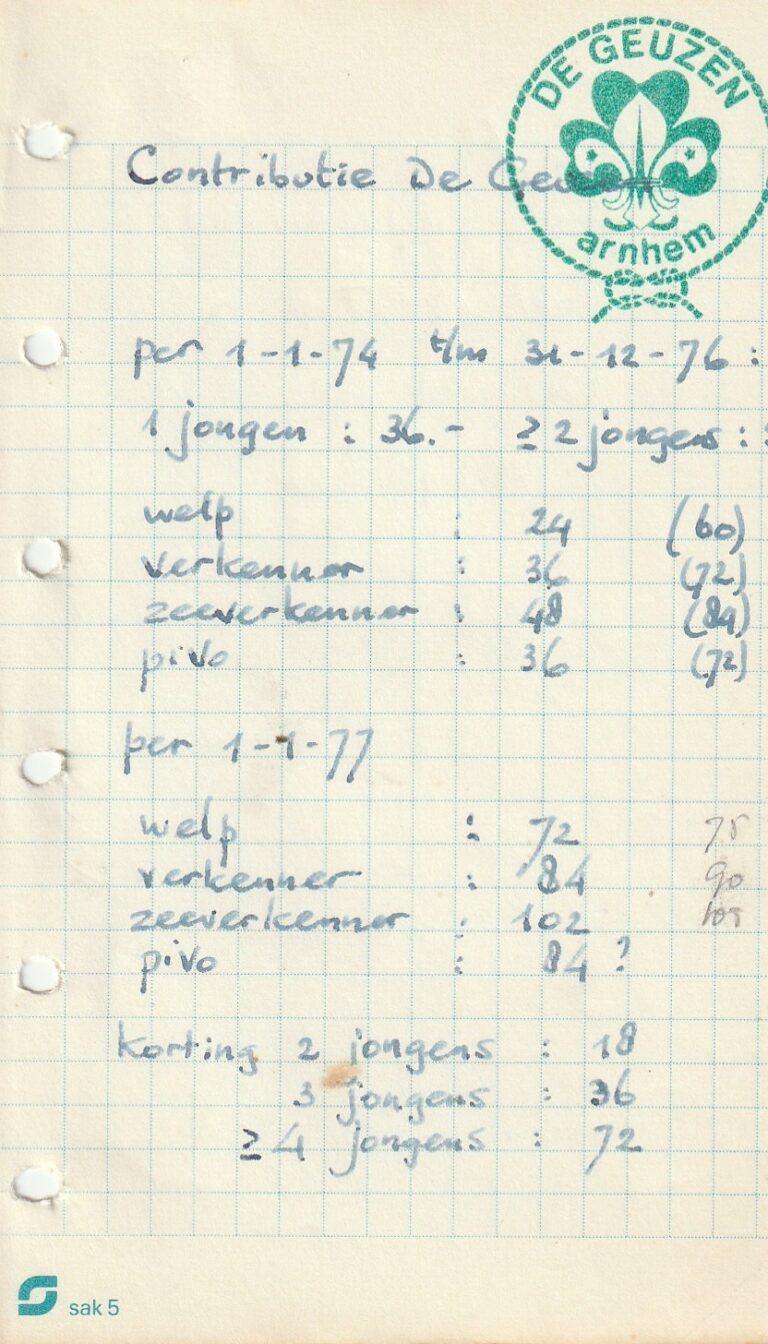 DE GEUZEN
arnhem
Contributie De Geuzen
per 1-1-74 t/m 31-12-76 :
1 jongen : 36.- ≥ 2 jongens :
welp : 24 (60)
verkenner : 36 (72)
zeeverkenner : 48 (84)
pivo : 36 (72)
per 1-1-77
welp : 72 75
verkenner : 84 90
zeeverkenner : 102
pivo : 84 ?
korting 2 jongens : 18
3 jongens : 36
≥ 4 jongens : 72
sak 5